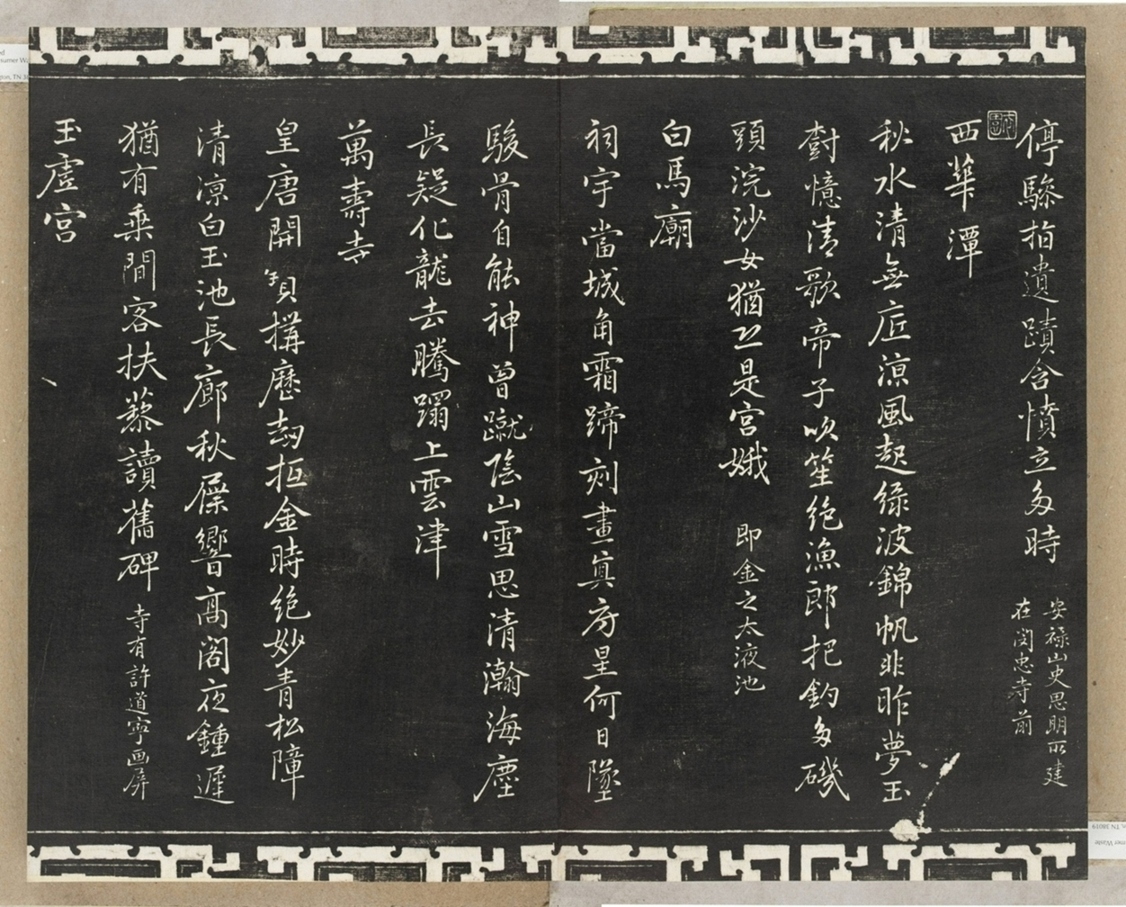 停驂拍遺蹟含憤立多時 安祿山史思明所建
在閔忠寺前
西華潭
秋水清無底涼風起綠波錦帆非昨夢玉
樹憶清歌帝子吹笙絶漁郎把釣多磯
頭浣沙女猶恐是宮娥 即金之太液池
白馬廟
祠宇當城角霜蹄刻畫真房星何日墜
駿骨自能神曾蹴陰山雪思清瀚海塵
長疑化龍去騰躍上雲津
萬壽寺
皇唐開寶構歷劫抵金時絶妙青松障
清涼白玉池長廊秋屧響高閣夜鍾遲
猶有乘閒客扶藜讀舊碑 寺有許道寧画屏
玉虛宮